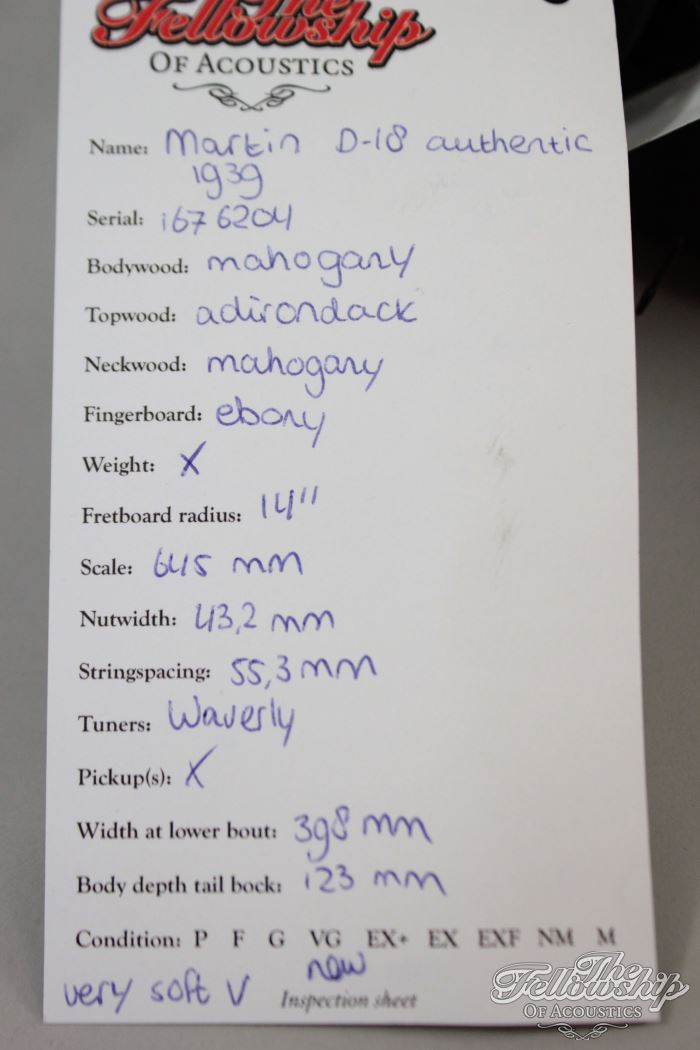 The
Fellowship
OF ACOUSTICS
Name: Martin D-18 authentic
1939
Serial: 1676204
Bodywood: mahogany
Topwood: adirondack
Neckwood: mahogany
Fingerboard: ebony
Weight: X
Fretboard radius: 14"
Scale: 645 mm
Nutwidth: 43,2 mm
Stringspacing: 55,3 mm
Tuners: Waverly
Pickup(s): X
Width at lower bout: 398 mm
Body depth tail bock: 123 mm
Condition: P F G VG EX+ EX EXF NM M
new
very soft V Inspection sheet
The
Fellowship
OF ACOUSTICS